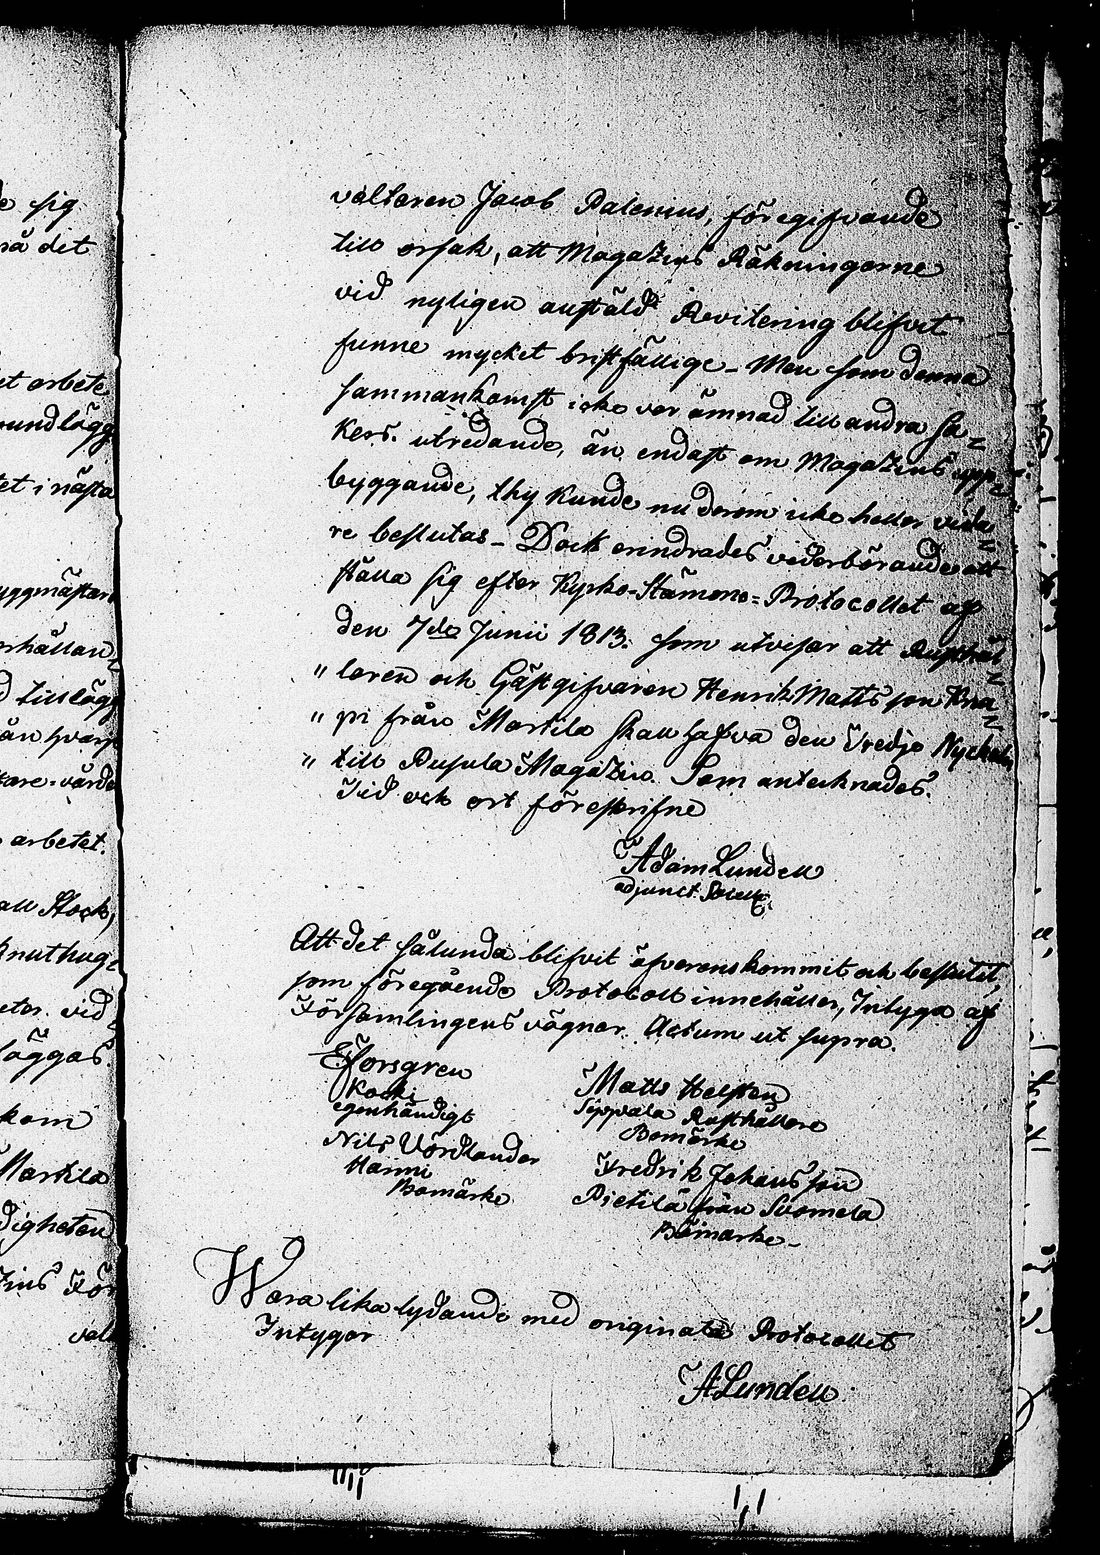 e sig
nå det
et arbete
rundlägg
tet i nästa
yggmästare
rhållan
d tillägg
ån hvarp
tare-värde
arbetet.
all Stock,
Knuthug-
eter. vid
läggas.
kom
Martila
digheten
zins För
valt
valtaren Jacob Palenius, föregifvande
till orsak, att Magazins Räkningarne
vid nyligen anstäld Revitering blifvit
funne mycket bristfällige - Men som denna
sammankomst icke var ämnad till andra sa-
kers. utredande, än endast om Magazins upp-
byggande, thy kunde nu derom icke heller vida-
re beslutas - Dock erindrades vederbörande att
ställa sig efter Kyrko-Stämmo-Protocollet af
den 7de Junii 1813. som utvisar att Rusthål-
" laren och Gästgifvaren Henrik Mattsson Kna-
" pi från Martila skall hafva den tredje Nyckeln
" till Pusula Magazin. Som antecknades.
Tid och ort föreskrifne
Adam Lundell
adjunct. Sacell.
Att det sålunda blifvit öfverenskommit och beslutit,
som föregående Protocoll innehåller, Intyga af
Församlingens vägnar. Actum ut supra.
E Forsgren
Koski
egenhändigt
Nils Nordlander
Hannu
Bomärke
Matts Helsten
Sippola Rusthållare
Bomärke
Fredrik Johansson
Pietilä från Suomela
Bomärke -
Wara lika lydande med originale Protocollet
Intygar
A Lundell